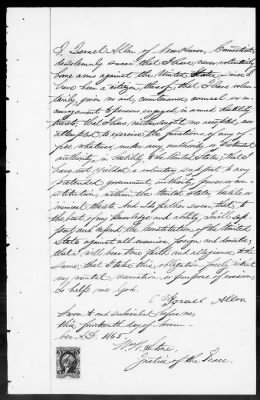 I, Israel Allen of New Haven, Connecticut,
do solemnly swear that I have never voluntarily
borne arms against the United States since I
have been a citizen thereof; that I have volun-
tarily given no aid, countenance, counsel or en-
couragement to persons engaged in armed hostility
thereto; that I have neither sought nor accepted, nor
attempted to exercise the functions of any of-
fice whatever, under any authority or pretended
authority, in hostility to the United States; that I
have not yielded a voluntary support to any
pretended government, authority, power or con-
stitution, within the United States, hostile or
inimical thereto. And I do further swear that to
the best of my knowledge and ability, I will sup-
port and defend the Constitution of the United
States against all enemies, foreign and domestic;
that I will bear true faith and allegiance to the
same; that I take this obligation freely without
any mental reservation or purpose of evasion,
So help me God.
Israel Allen
Sworn to and subscribed before me,
this fourteenth day of Novem-
ber A.D. 1865.
Justice of the Peace.